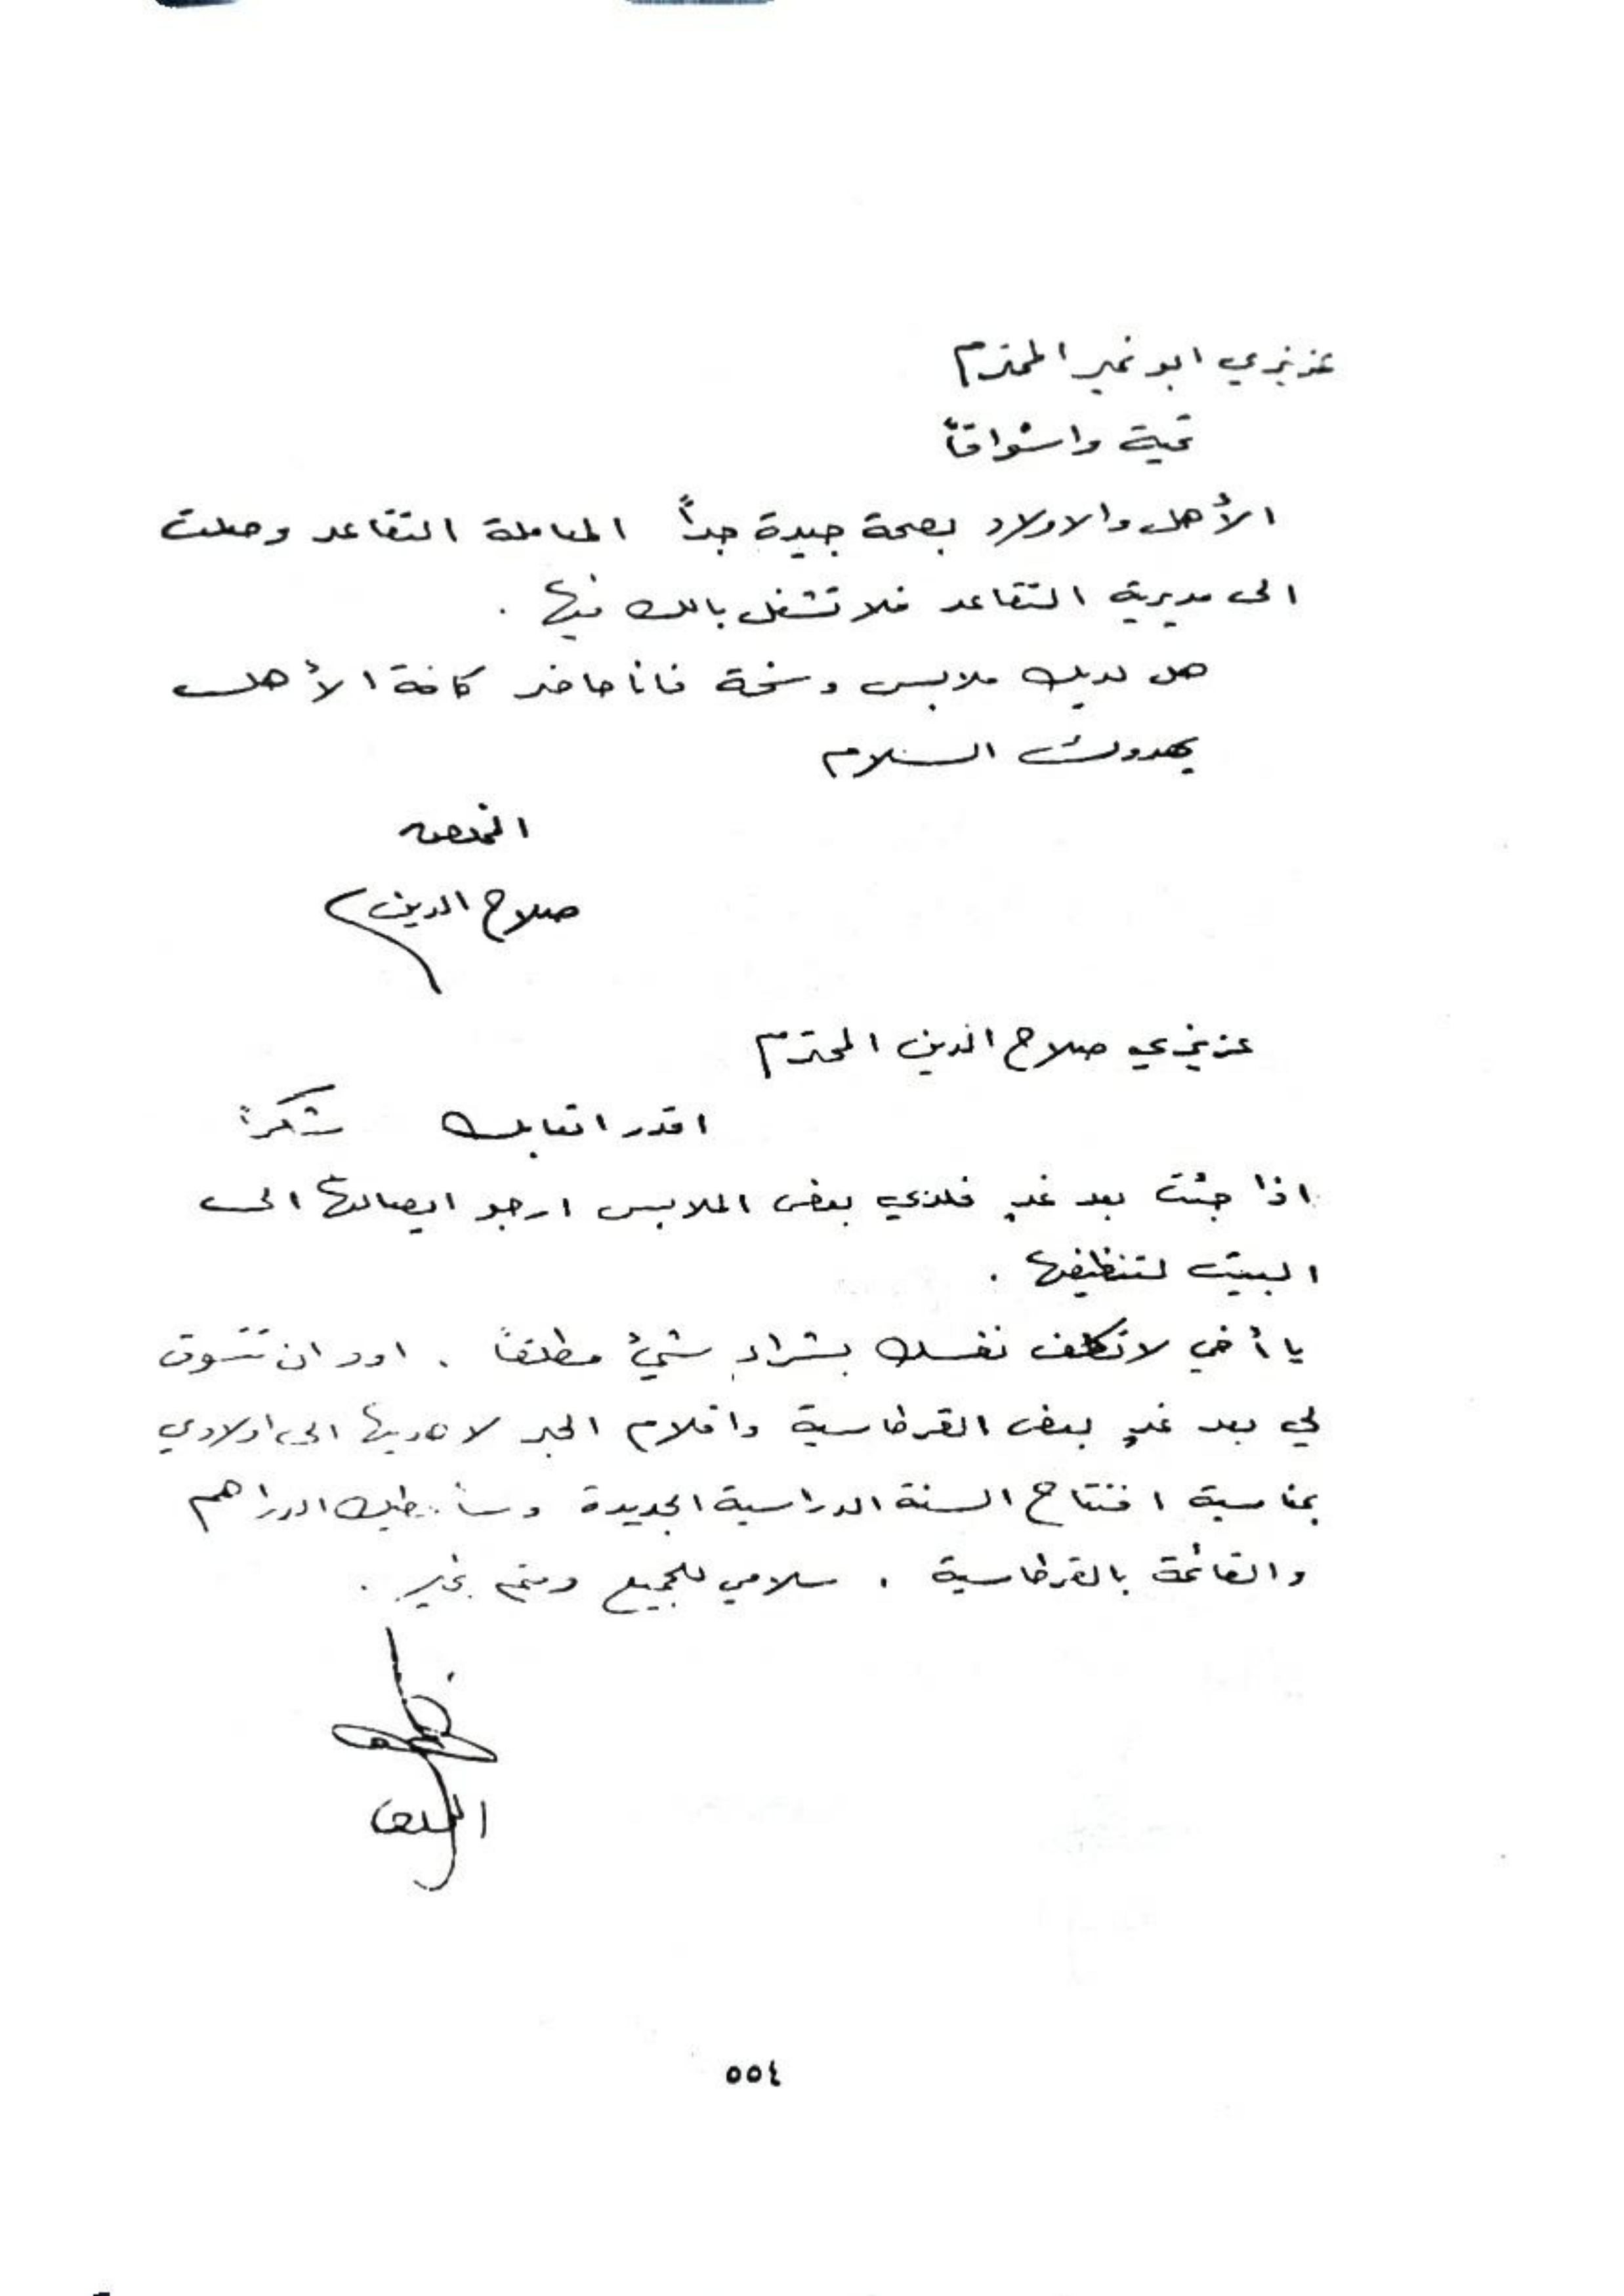 عزيزي ابو نمير المحترم
تحية واشواقاً
الأهل والاولاد بصحة جيدة جداً المعاملة التقاعد وصلت
الى مديرية التقاعد فلا تشغل بالك فيها .
هل لديك ملابس وسخة فانا حاضر كافة الأهل
يهدوك السلام
المخلص
صلاح الدين
عزيزي صلاح الدين المحترم
اقدر اتعابك شكراً
اذا جئت بعد غدٍ فلدي بعض الملابس ارجو ايصالها الى
البيت لتنظيفها .
يا أخي لا تكلف نفسك بشراء شيْ مطلقاً . اود ان تتسوق
لي بعد غدٍ بعض القرطاسية واقلام الحبر لاهديها الى اولادي
بمناسبة افتتاح السنة الدراسية الجديدة وسأعطيك الدراهم
والقائمة بالقرطاسية . سلامي للجميع ودمتم بخير .
٥٥٤